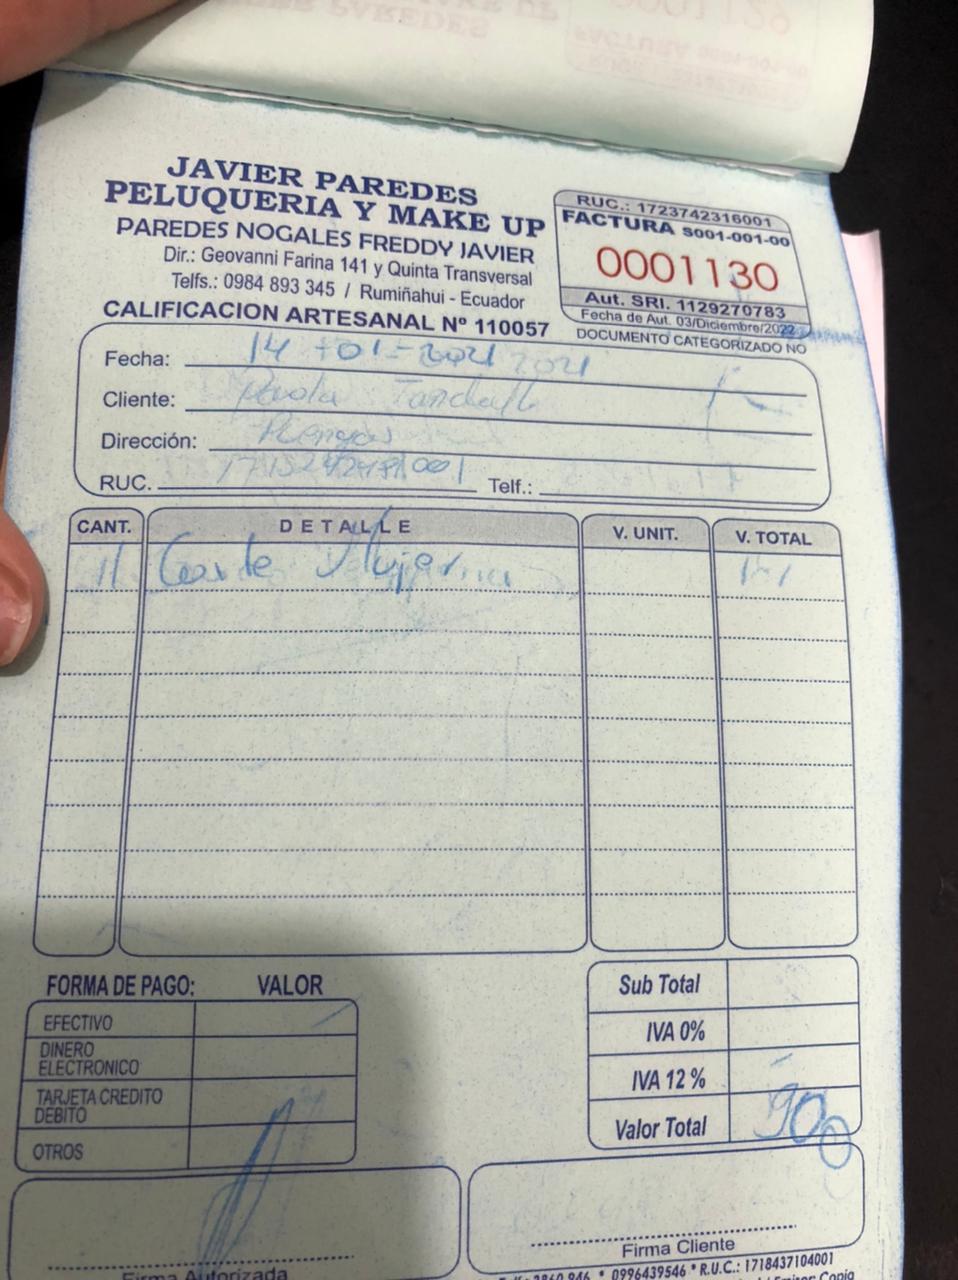 JAVIER PAREDES
PELUQUERIA Y MAKE UP
PAREDES NOGALES FREDDY JAVIER
Dir.: Geovanni Farina 141 y Quinta Transversal
Telfs.: 0984 893 345 / Rumiñahui - Ecuador
CALIFICACION ARTESANAL Nº 110057
RUC.: 1723742316001
FACTURA S001-001-00
0001130
Aut. SRI. 1129270783
Fecha de Aut. 03/Diciembre/2022
DOCUMENTO CATEGORIZADO NO
Fecha: 14 - 01 - 2021 2021
Cliente: Paola
Dirección:
RUC.
Telf.:
CANT. DETALLE V. UNIT. V. TOTAL
11 Corte
FORMA DE PAGO: VALOR
EFECTIVO
DINERO
ELECTRONICO
TARJETA CREDITO
DEBITO
OTROS
Sub Total
IVA 0%
IVA 12 %
Valor Total 90
Firma Autorizada
Firma Cliente
2860 946 * 0996439546 * R.U.C.: 1718437104001
Emisor Copia